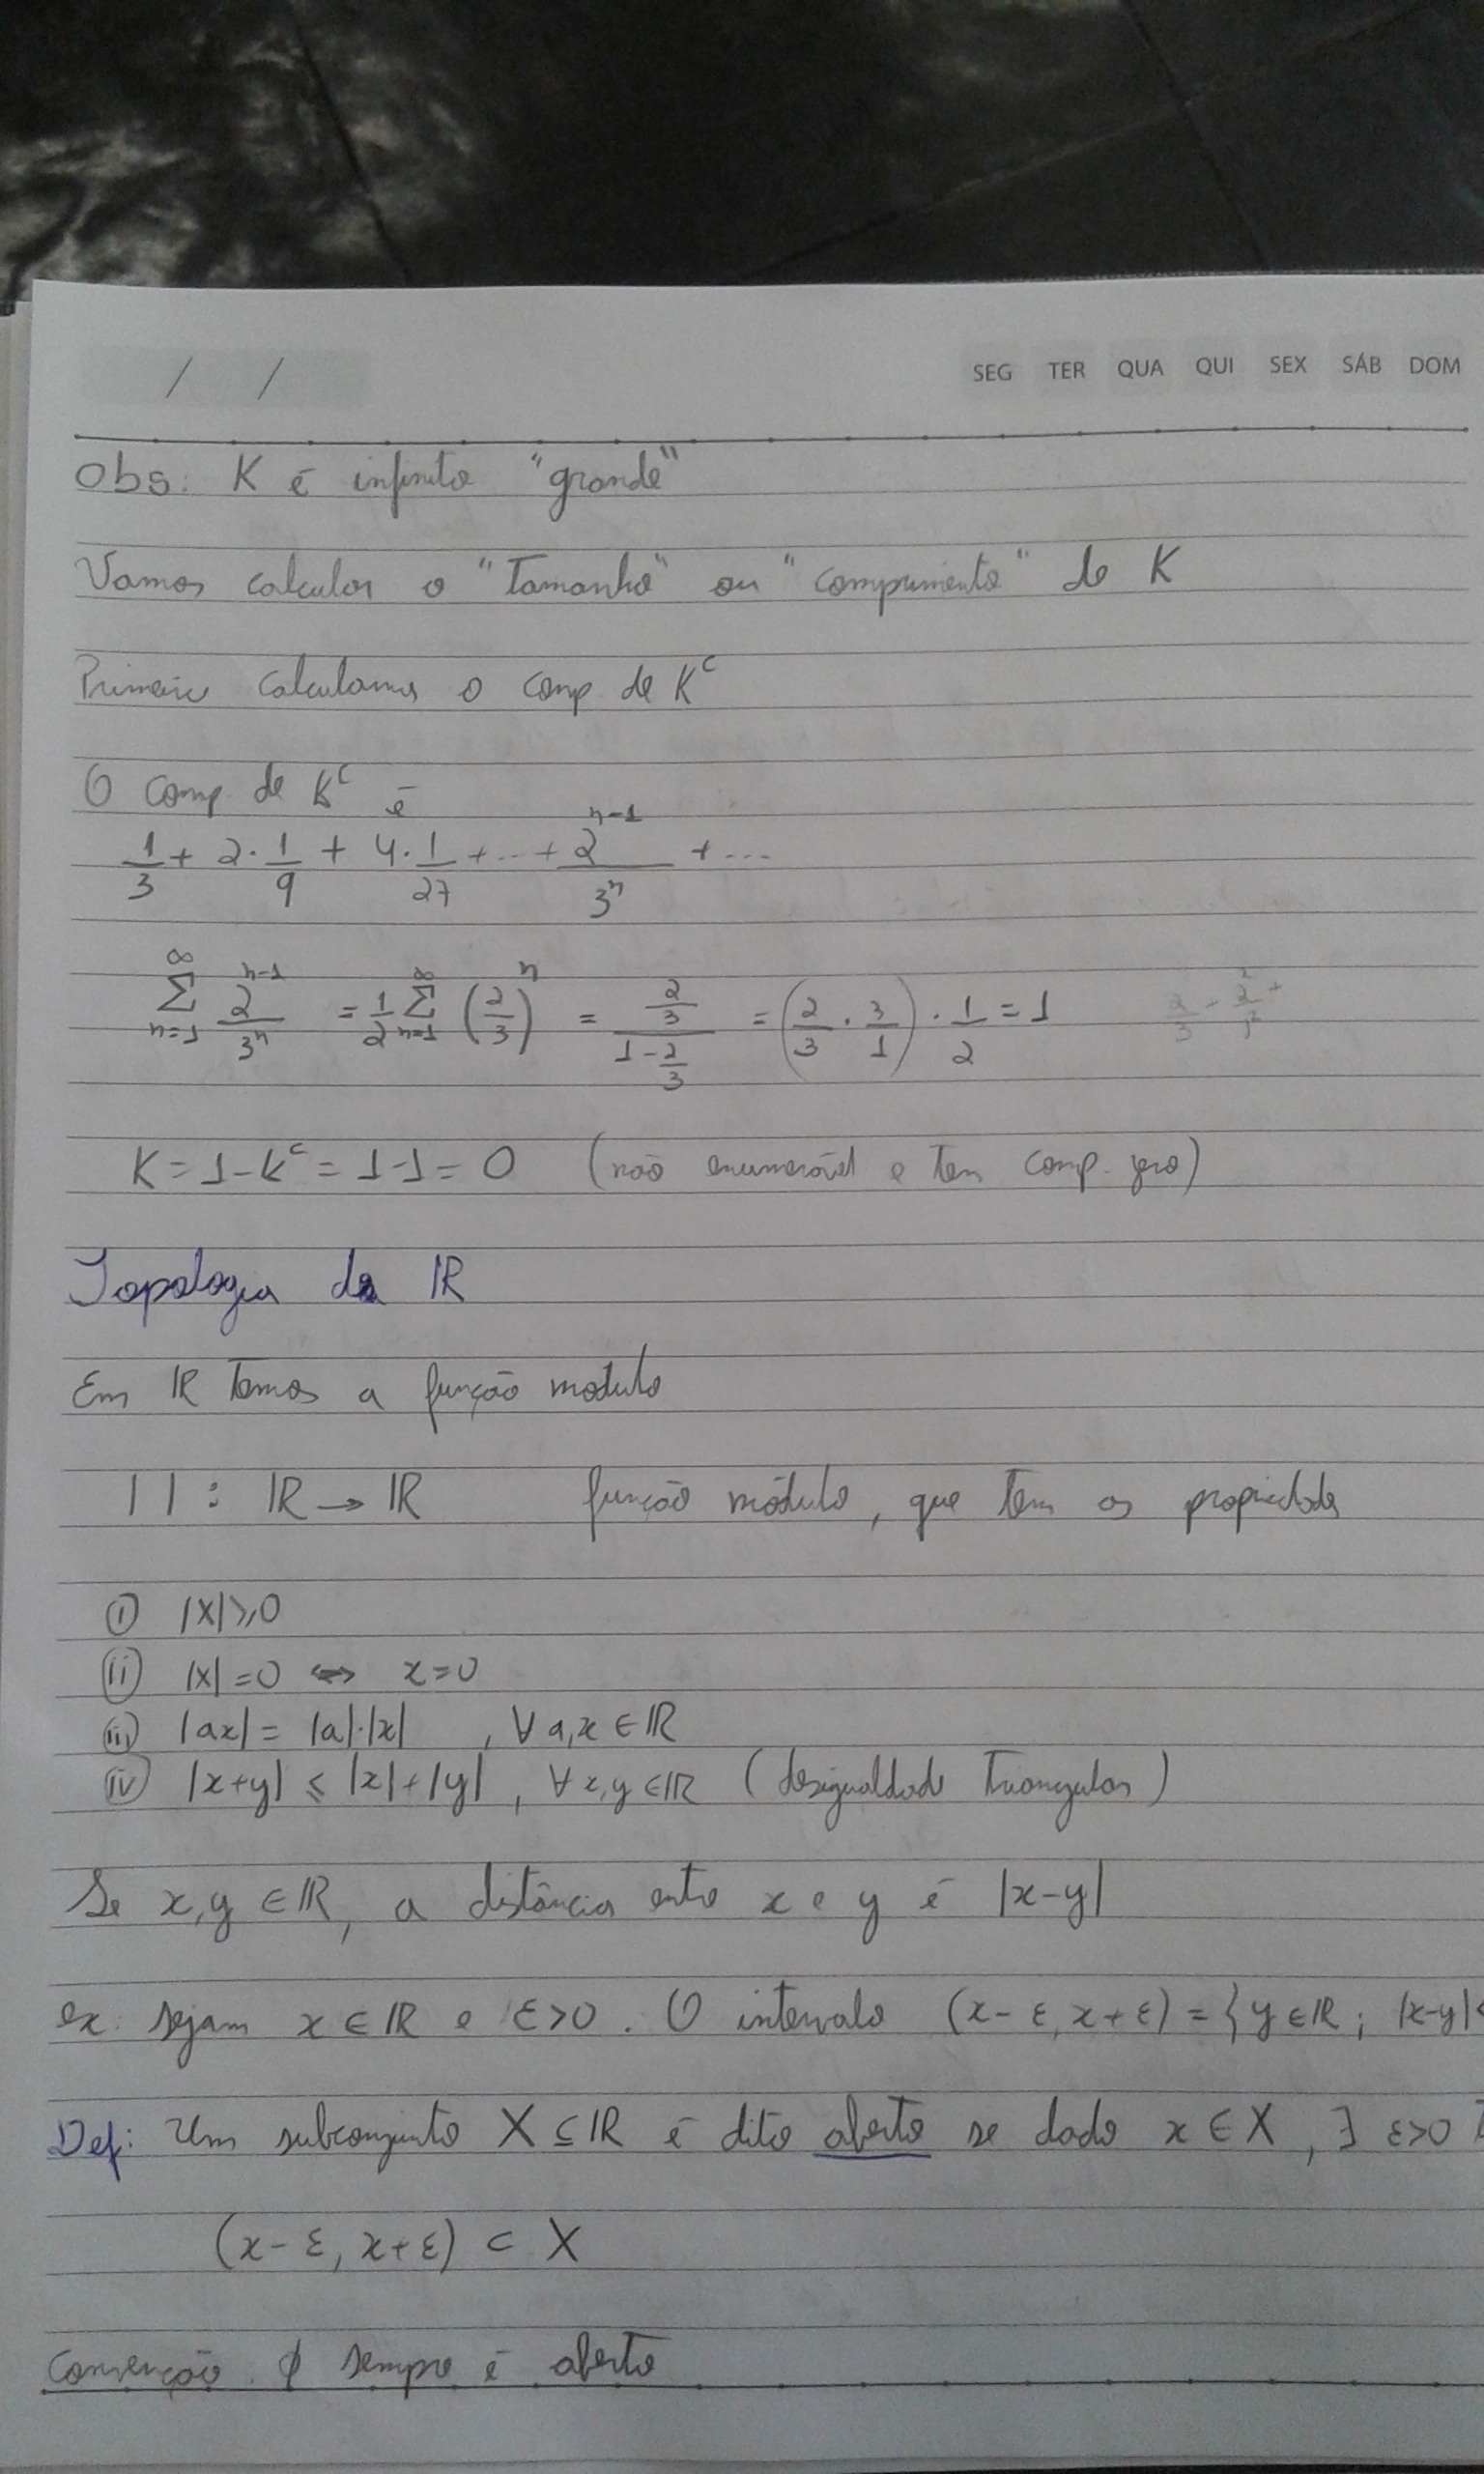 / / SEG TER QUA QUI SEX SÁB DOM
Obs: K é infinito "grande"
Vamos calcular o "Tamanho" ou "comprimento" de K
Primeiro calculamos o comp de K^c
O comp. de K^c é
1/3 + 2·1/9 + 4·1/27 + ... + 2^{n-1}/3^n + ...
∑_{n=1}^∞ 2^{n-1}/3^n = 1/2 ∑_{n=1}^∞ (2/3)^n = (2/3)/(1-2/3) = (2/3 · 3/1) · 1/2 = 1
K = 1 - K^c = 1-1 = 0 (não enumerável e tem comp. zero)
Topologia da ℝ
Em ℝ temos a função modulo
| | : ℝ → ℝ função módulo, que tem as propriedades
(i) |x| ≥ 0
(ii) |x| = 0 ⇔ x = 0
(iii) |ax| = |a|·|x| , ∀ a,x ∈ ℝ
(iv) |x+y| ≤ |x|+|y| , ∀ x,y ∈ ℝ (desigualdade Triangular)
Se x,y ∈ ℝ, a distância entre x e y é |x-y|
ex: sejam x ∈ ℝ e ε>0. O intervalo (x-ε, x+ε) = { y ∈ ℝ ; |x-y| <
Def: Um subconjunto X ⊆ ℝ é dito aberto se dado x ∈ X , ∃ ε>0
(x-ε, x+ε) ⊂ X
Convenção. ∅ sempre é aberto